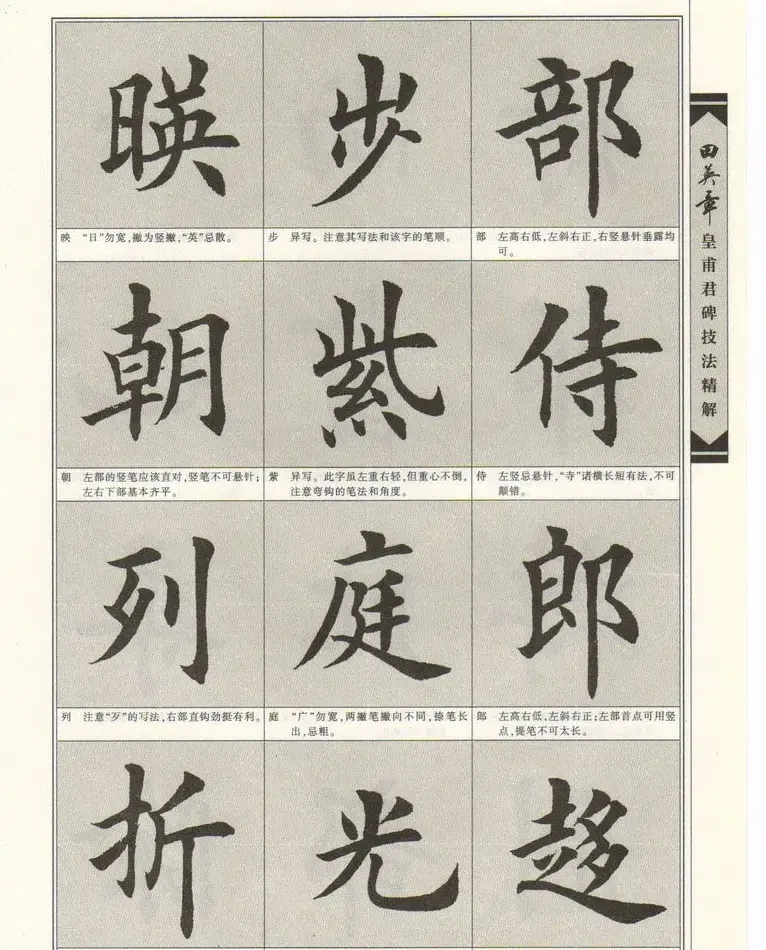 田英章皇甫君碑技法精解
部
部 左高右低,左斜右正,右竖悬针垂露均
可。
侍
侍 左竖忌悬针,“寺”诸横长短有法,不可
颠错。
郎
郎 左高右低,左斜右正;左部首点可用竖
点,提笔不可太长。
趍
步
步 异写。注意其写法和该字的笔顺。
紫
紫 异写。此字虽左重右轻,但重心不倒,
注意弯钩的笔法和角度。
庭
庭 “广”勿宽,两撇笔撇向不同,捺笔长
出,忌粗。
光
暎
映 “日”勿宽,撇为竖撇,“英”忌散。
朝
朝 左部的竖笔应该直对,竖笔不可悬针;
左右下部基本齐平。
列
列 注意“歹”的写法,右部直钩劲挺有利。
折